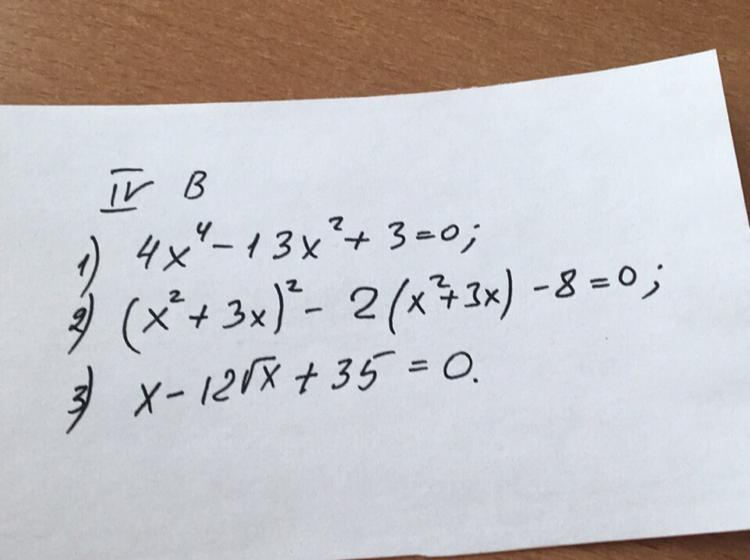 IV В
1) 4x⁴ - 13x² + 3 = 0;
2) (x² + 3x)² - 2(x² + 3x) - 8 = 0;
3) x - 12√x + 35 = 0.